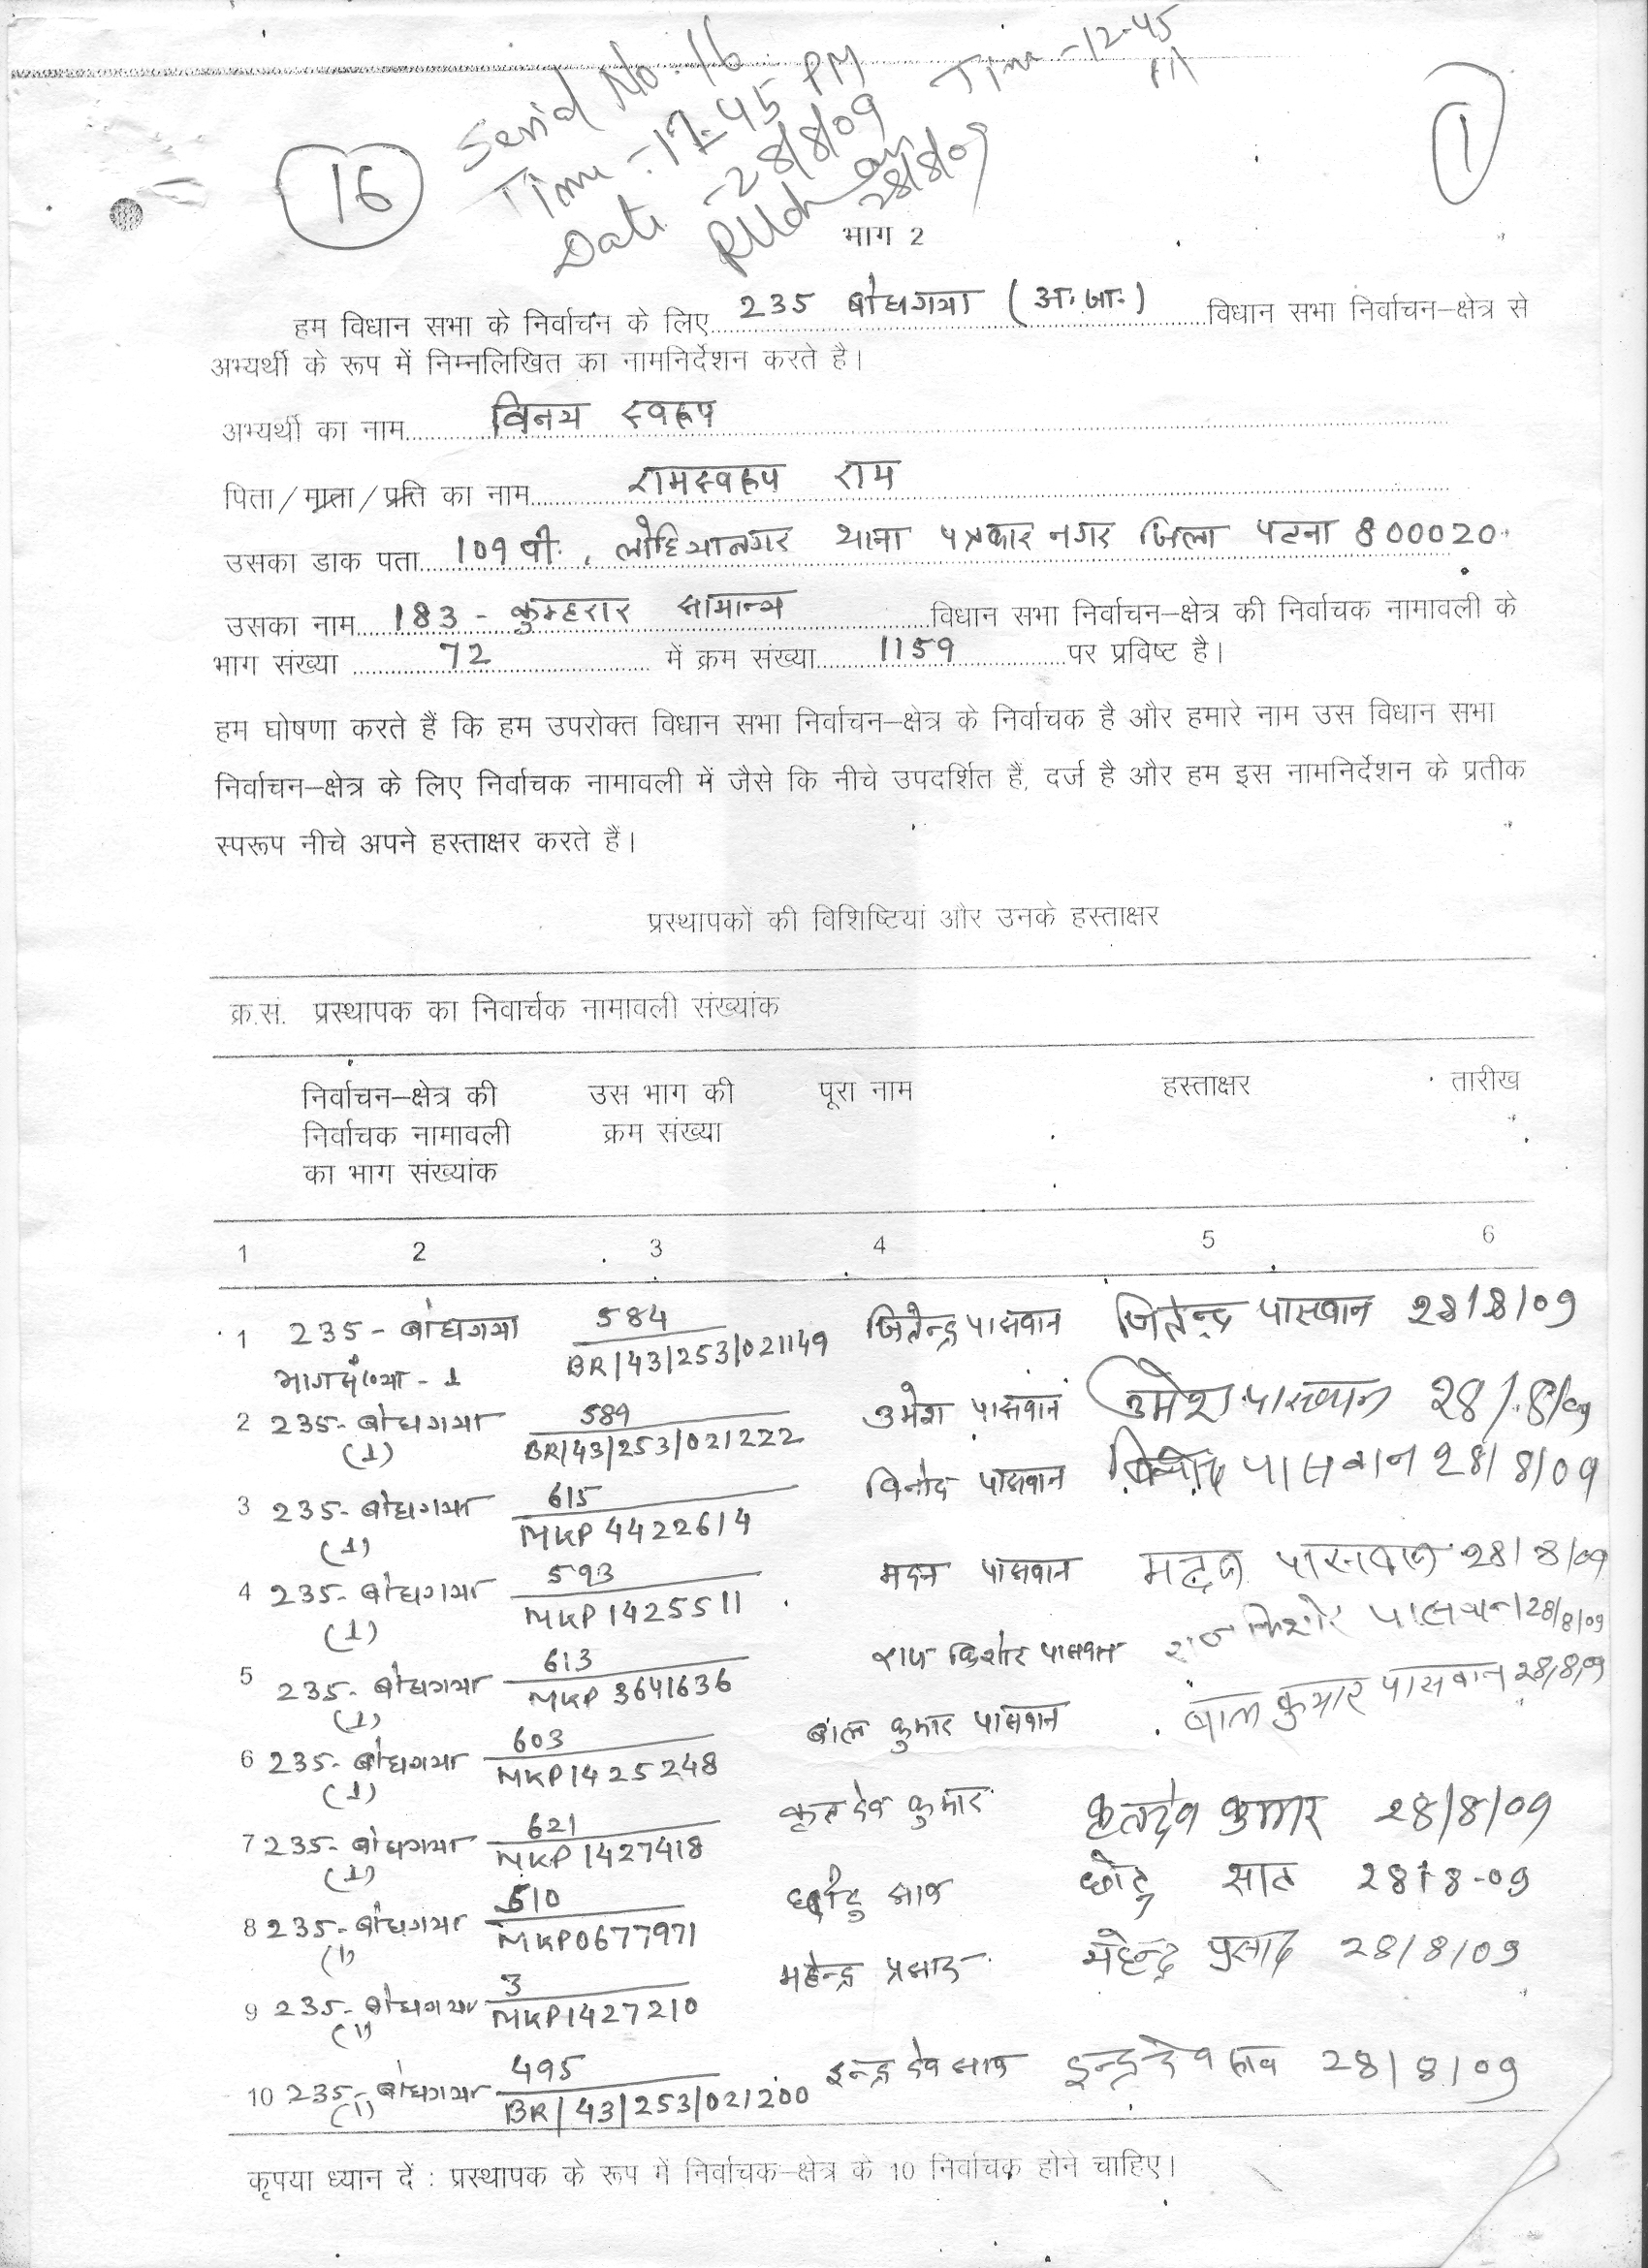 Serial No. 16
Time - 12-45 PM
Time - 12-45
Date - 28/8/09
28/8/09
16
1
भाग 2
हम विधान सभा के निर्वाचन के लिए 235 बोधगया (अ. जा.) विधान सभा निर्वाचन–क्षेत्र से
अभ्यर्थी के रूप में निम्नलिखित का नामनिर्देशन करते है।
अभ्यर्थी का नाम विनय स्वरूप
पिता/माता/प्रत्ति का नाम रामस्वरूप राम
उसका डाक पता 109 पी., लोहियानगर थाना पत्रकार नगर जिला पटना 800020.
उसका नाम 183 - कुम्हरार सामान्य विधान सभा निर्वाचन–क्षेत्र की निर्वाचक नामावली के
भाग संख्या 72 में क्रम संख्या 1159 पर प्रविष्ट है।
हम घोषणा करते हैं कि हम उपरोक्त विधान सभा निर्वाचन–क्षेत्र के निर्वाचक है और हमारे नाम उस विधान सभा
निर्वाचन–क्षेत्र के लिए निर्वाचक नामावली में जैसे कि नीचे उपदर्शित हैं, दर्ज है और हम इस नामनिर्देशन के प्रतीक
स्परूप नीचे अपने हस्ताक्षर करते हैं।
प्रस्थापकों की विशिष्टियां और उनके हस्ताक्षर
क्र.सं. प्रस्थापक का निवार्चक नामावली संख्यांक
निर्वाचन–क्षेत्र की उस भाग की पूरा नाम हस्ताक्षर तारीख
निर्वाचक नामावली क्रम संख्या
का भाग संख्यांक
1 2 3 4 5 6
1 235 - बोधगया 584 जितेन्द्र पासवान जितेन्द्र पासवान 28/8/09
भाग संख्या - 1 BR/43/253/021149
2 235- बोधगया 589 उमेश पासवान उमेश पासवान 28/8/09
(1) BR/43/253/021222
3 235- बोधगया 615 विनोद पासवान विनोद पासवान 28/8/09
(1) MKP 4422614
4 235- बोधगया 593 मदन पासवान मदन पासवान 28/8/09
(1) MKP1425511
5 235- बोधगया 613 राज किशोर पासवान राज किशोर पासवान 28/8/09
(1) MKP 3641636
6 235- बोधगया 603 बाल कुमार पासवान बाल कुमार पासवान 28/8/09
(1) MKP1425248
7 235- बोधगया 621 कृतदेव कुमार कृतदेव कुमार 28/8/09
(1) MKP1427418
8 235- बोधगया 510 छोटु साव छोटु साव 28-8-09
(1) MKP0677971
9 235- बोधगया 3 महेन्द्र प्रसाद महेन्द्र प्रसाद 28/8/09
(1) MKP1427210
10 235- बोधगया 495 इन्द्रदेव साव इन्द्रदेव साव 28/8/09
(1) BR/43/253/021200
कृपया ध्यान दें : प्रस्थापक के रूप में निर्वाचक–क्षेत्र के 10 निर्वाचक होने चाहिए।